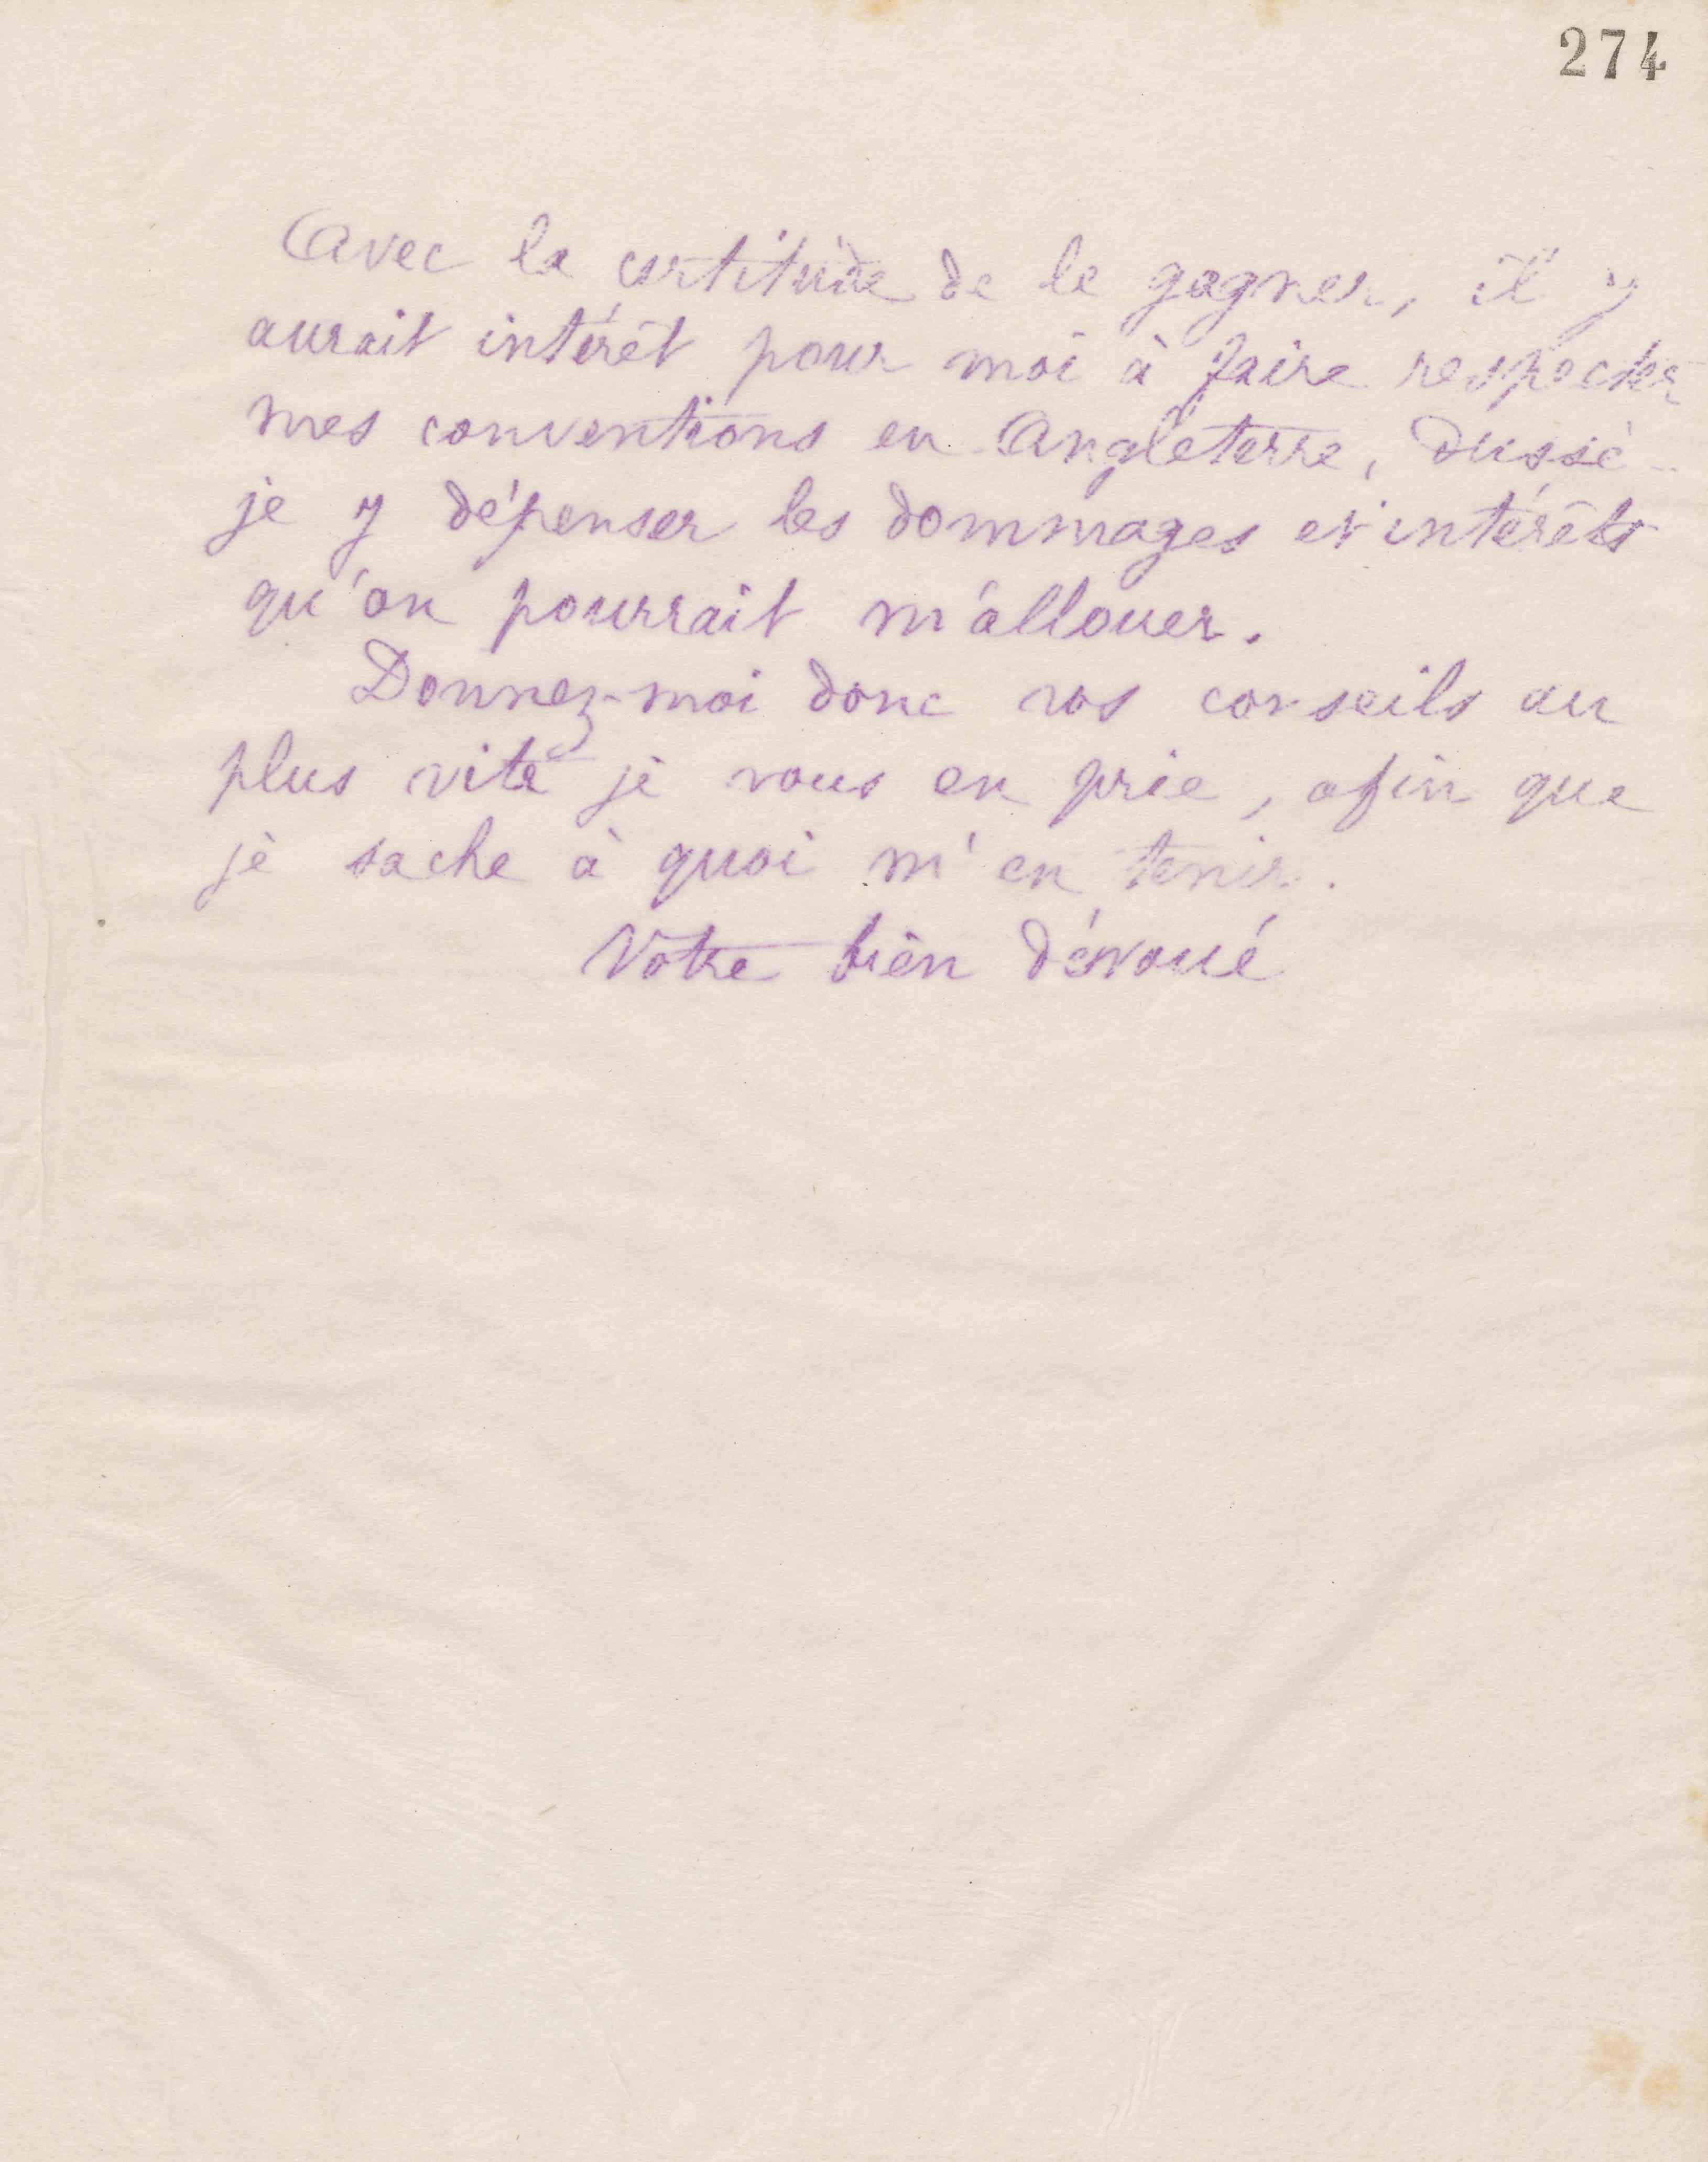 274
Avec la certitude de le gagner, il y
aurait intérêt pour moi à faire respecter
mes conventions en Angleterre, dussè-
je y dépenser les dommages et intérêts
qu'on pourrait m'allouer.
Donnez-moi donc vos conseils au
plus vite je vous en prie, afin que
je sache à quoi m'en tenir.
Votre bien dévoué